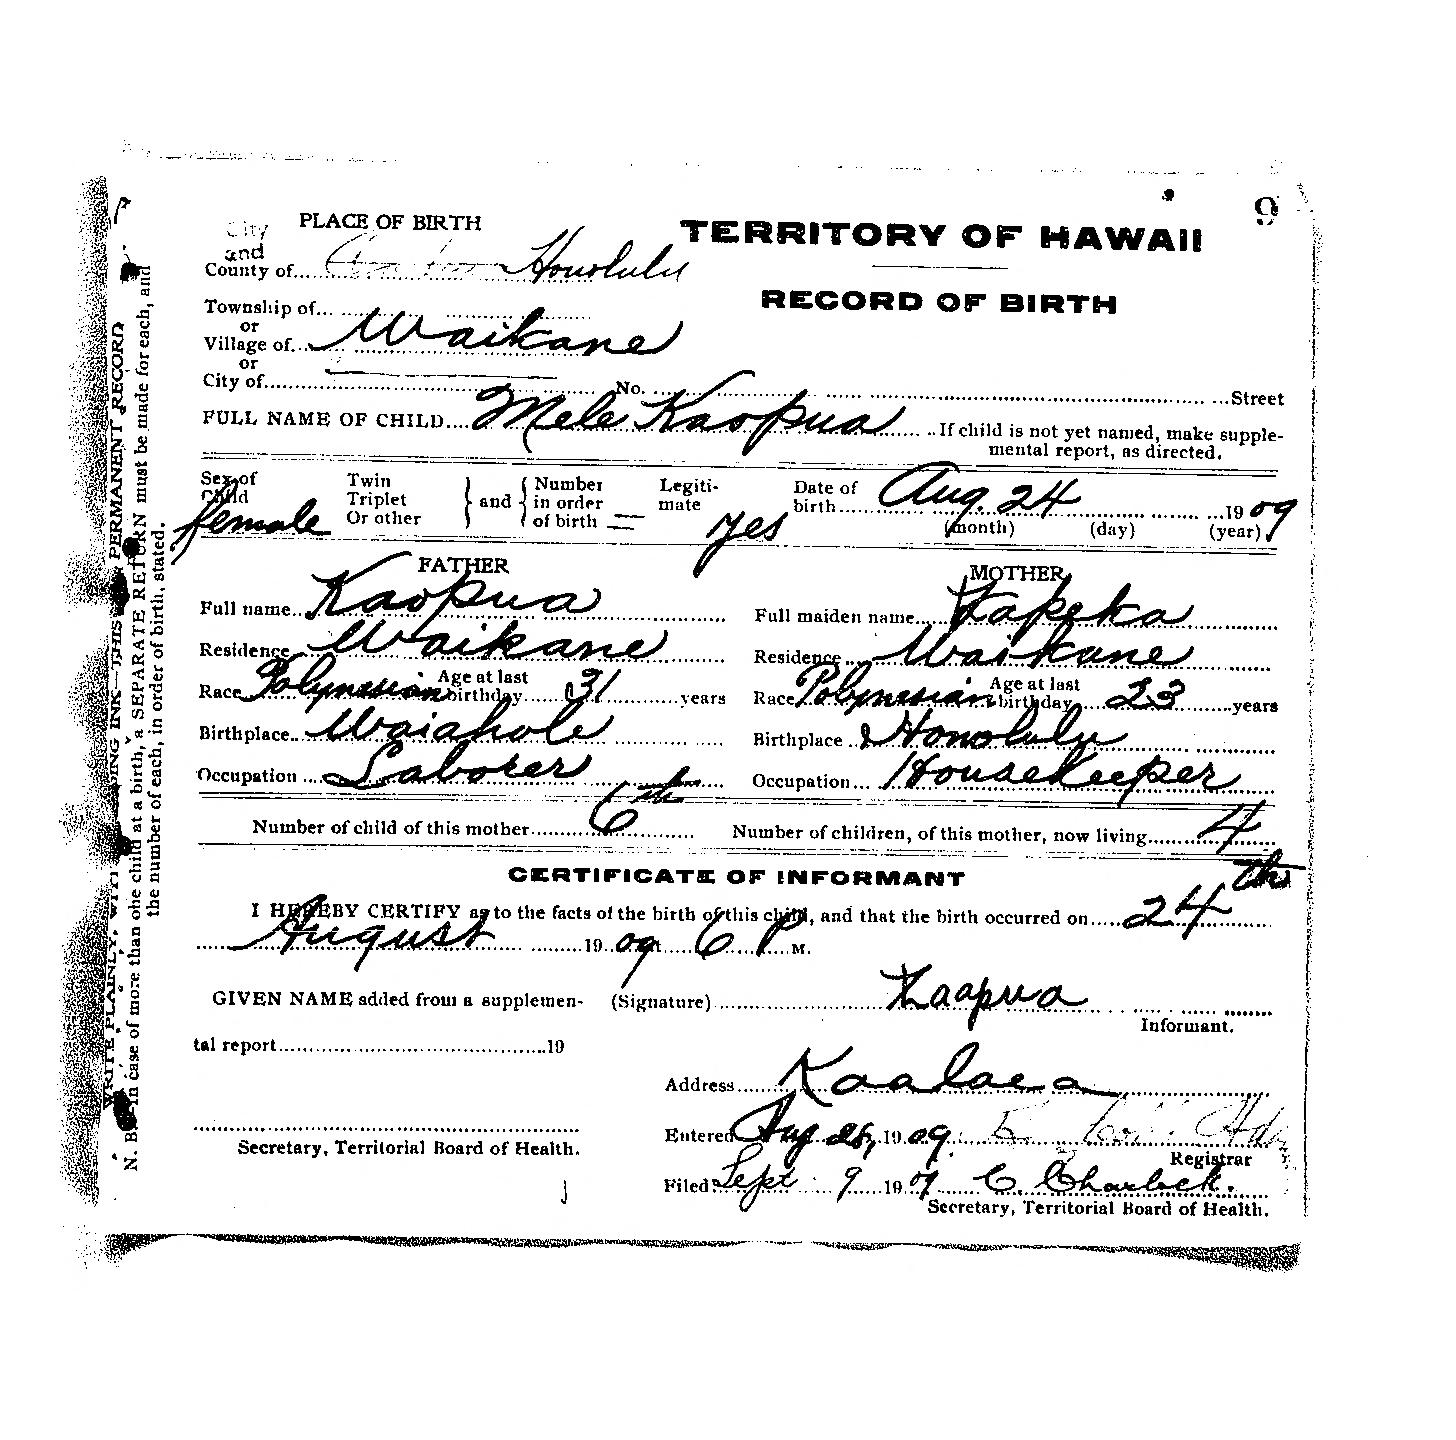 9
PLACE OF BIRTH
TERRITORY OF HAWAII
City
and
County of... Honolulu
RECORD OF BIRTH
Township of...
or
Village of... Waikane
or
City of... No. ... Street
FULL NAME OF CHILD.... Mele Kaopua ...If child is not yet named, make supple-
mental report, as directed.
Sex of Child female
Twin Triplet Or other } and { Number in order of birth —
Legiti- mate yes
Date of birth... Aug. 24 ...1909
(month) (day) (year)
FATHER
Full name... Kaopua
Residence Waikane
Race Polynesian Age at last birthday.... 31 ...years
Birthplace.. Waiahole
Occupation ... Laborer
MOTHER
Full maiden name... Kapeka
Residence... Waikane
Race Polynesian Age at last birthday... 23 ...years
Birthplace .. Honolulu
Occupation... Housekeeper
Number of child of this mother... 6th Number of children, of this mother, now living... 4
CERTIFICATE OF INFORMANT
I HEREBY CERTIFY as to the facts of the birth of this child, and that the birth occurred on.... 24th
... August ...1909 at 6 P M.
GIVEN NAME added from a supplemen- (Signature) ... Kaapua
Informant.
tal report...19
Address... Kaalaea
Entered Aug 28, 1909.
Registrar
Secretary, Territorial Board of Health.
Filed Sept 9 190 C. Charlock.
Secretary, Territorial Board of Health.
WRITE PLAINLY, WITH UNFADING INK—THIS IS A PERMANENT RECORD
N. B.—In case of more than one child at a birth, a SEPARATE RETURN must be made for each, and
the number of each, in order of birth, stated.